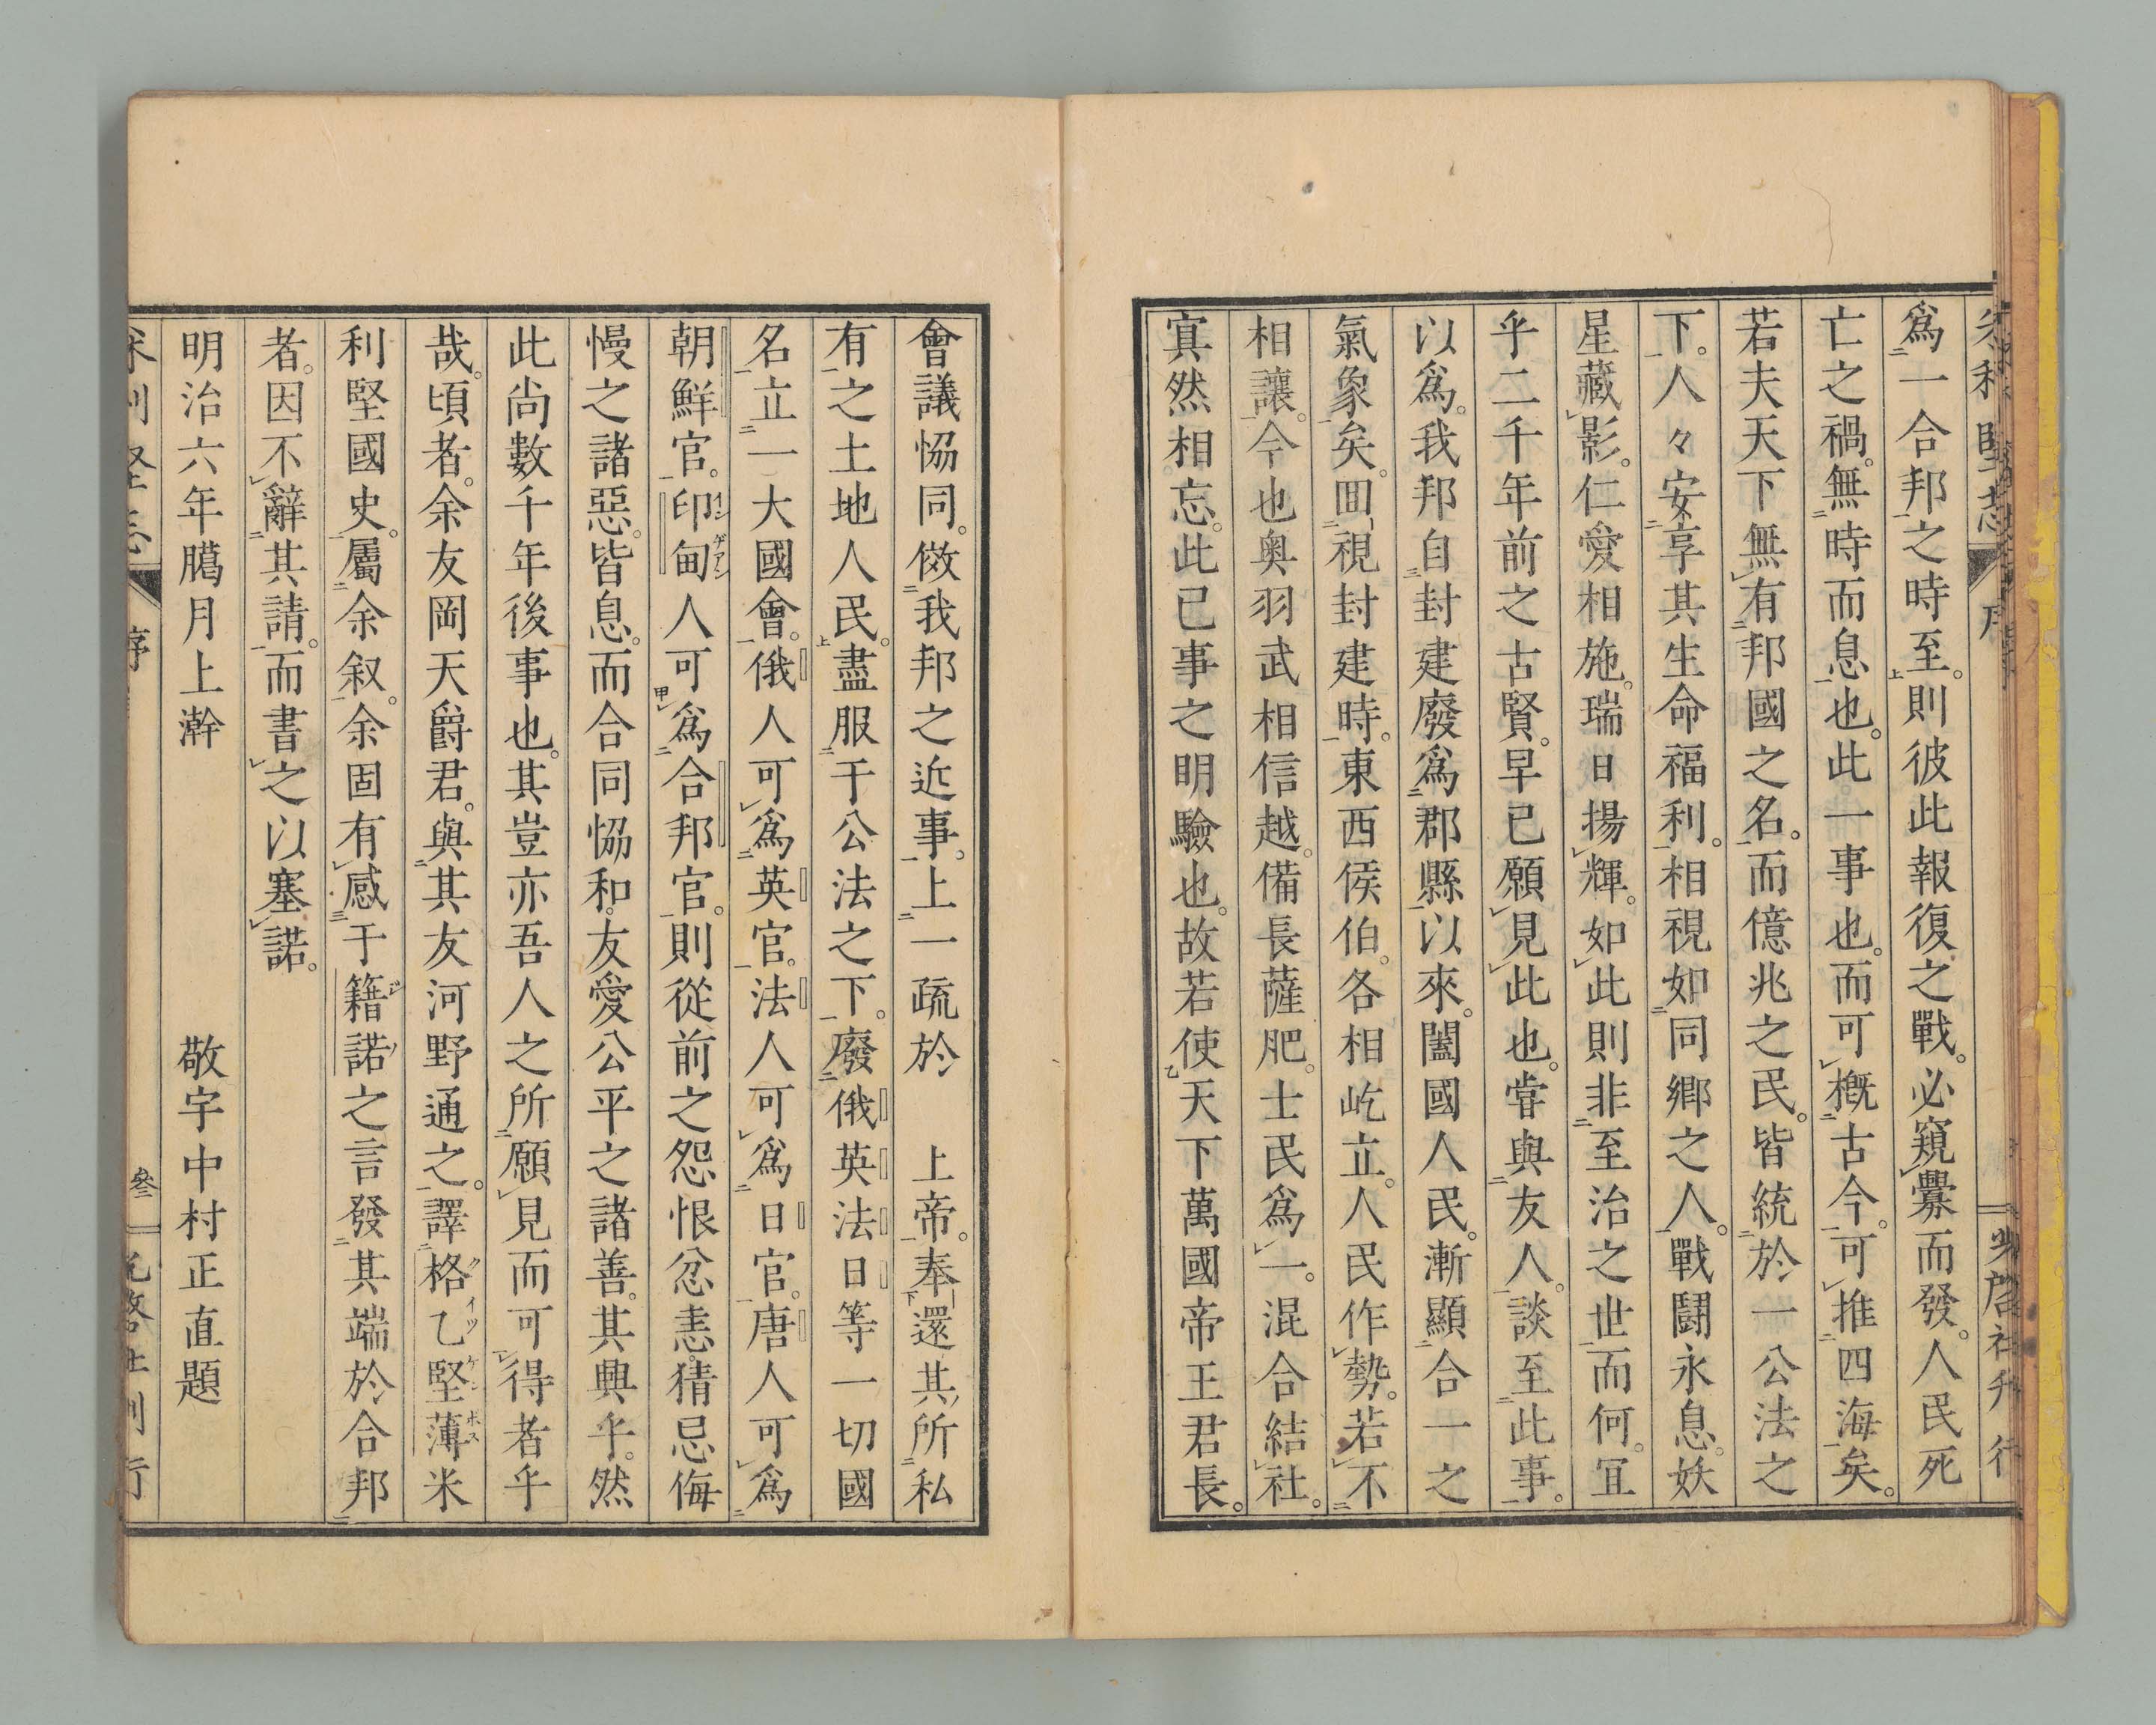 爲一合邦之時至。則彼此報復之戰。必窺釁而發。人民死
亡之禍。無時而息也。此一事也。而可概古今。可推四海矣。
若夫天下無有邦國之名。而億兆之民。皆統於一公法之
下。人々安享其生命福利。相視如同鄉之人。戰鬪永息。妖
星藏影。仁愛相施。瑞日揚輝。如此則非至治之世而何。宜
乎二千年前之古賢。早已願見此也。嘗與友人。談至此事。
以爲。我邦自封建廢爲郡縣以來。闔國人民。漸顯合一之
氣象矣。囬視封建時。東西侯伯。各相屹立。人民作勢。若不
相讓。今也奥羽武相信越。備長薩肥。士民爲一。混合結社。
寘然相忘。此已事之明驗也。故若使天下萬國帝王君長。
會議恊同。傚我邦之近事。上一疏於　上帝。奉還其所私
有之土地人民。盡服于公法之下。廢俄英法日等一切國
名。立一大國會。俄人可爲英官。法人可爲日官。唐人可爲
朝鮮官。印甸人可爲合邦官。則從前之怨恨忿恚。猜忌侮
慢之諸惡。皆息。而合同恊和。友愛公平之諸善。其興乎。然
此尚數千年後事也。其豈亦吾人之所願見而可得者乎
哉。頃者。余友岡天爵君。與其友河野通之。譯格乙堅薄米
利堅國史。屬余叙。余固有感于籍諾之言發其端於合邦
者。因不辭其請。而書之以塞諾。
明治六年臈月上澣　敬宇中村正直題